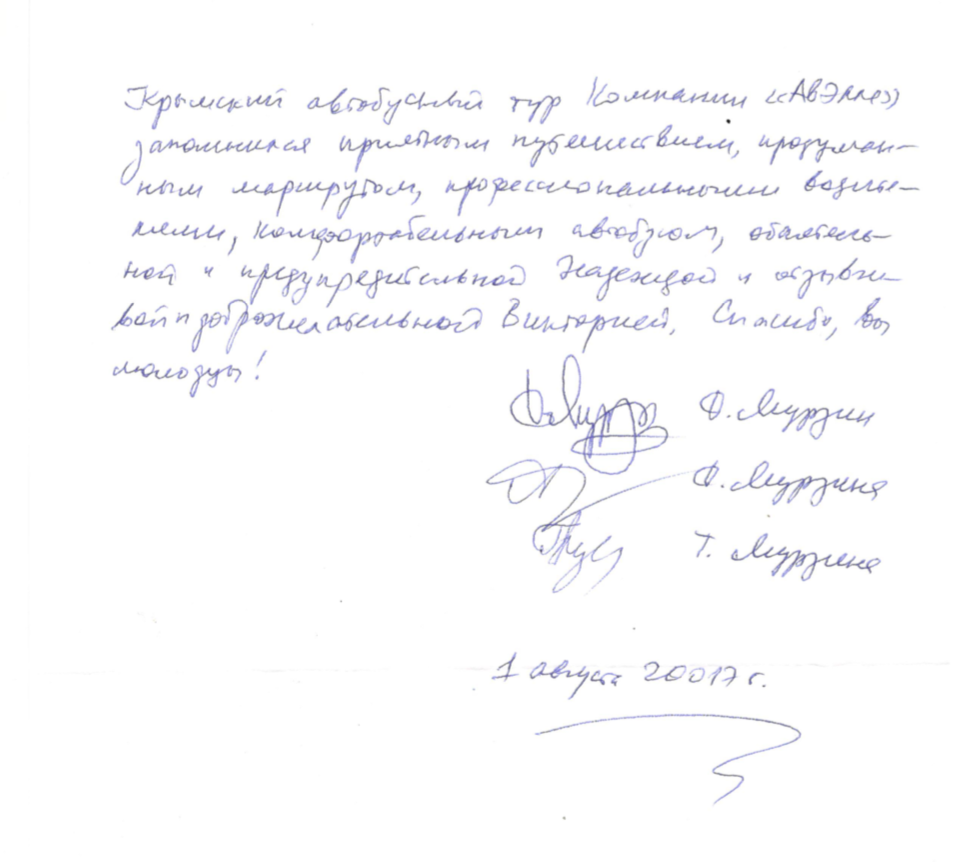 Крымский автобусный тур Компании «АВЭЛЛЕ»
запомнился приятным путешествием, продуман-
ным маршрутом, профессиональными водите-
лями, комфортабельным автобусом, обаятель-
ной и предупредительной Надеждой и отзывчи-
вой и доброжелательной Викторией. Спасибо, Вы
молодцы!
Ф. Мурзин
Ф. Мурзина
Т. Мурзина
1 августа 20017 г.